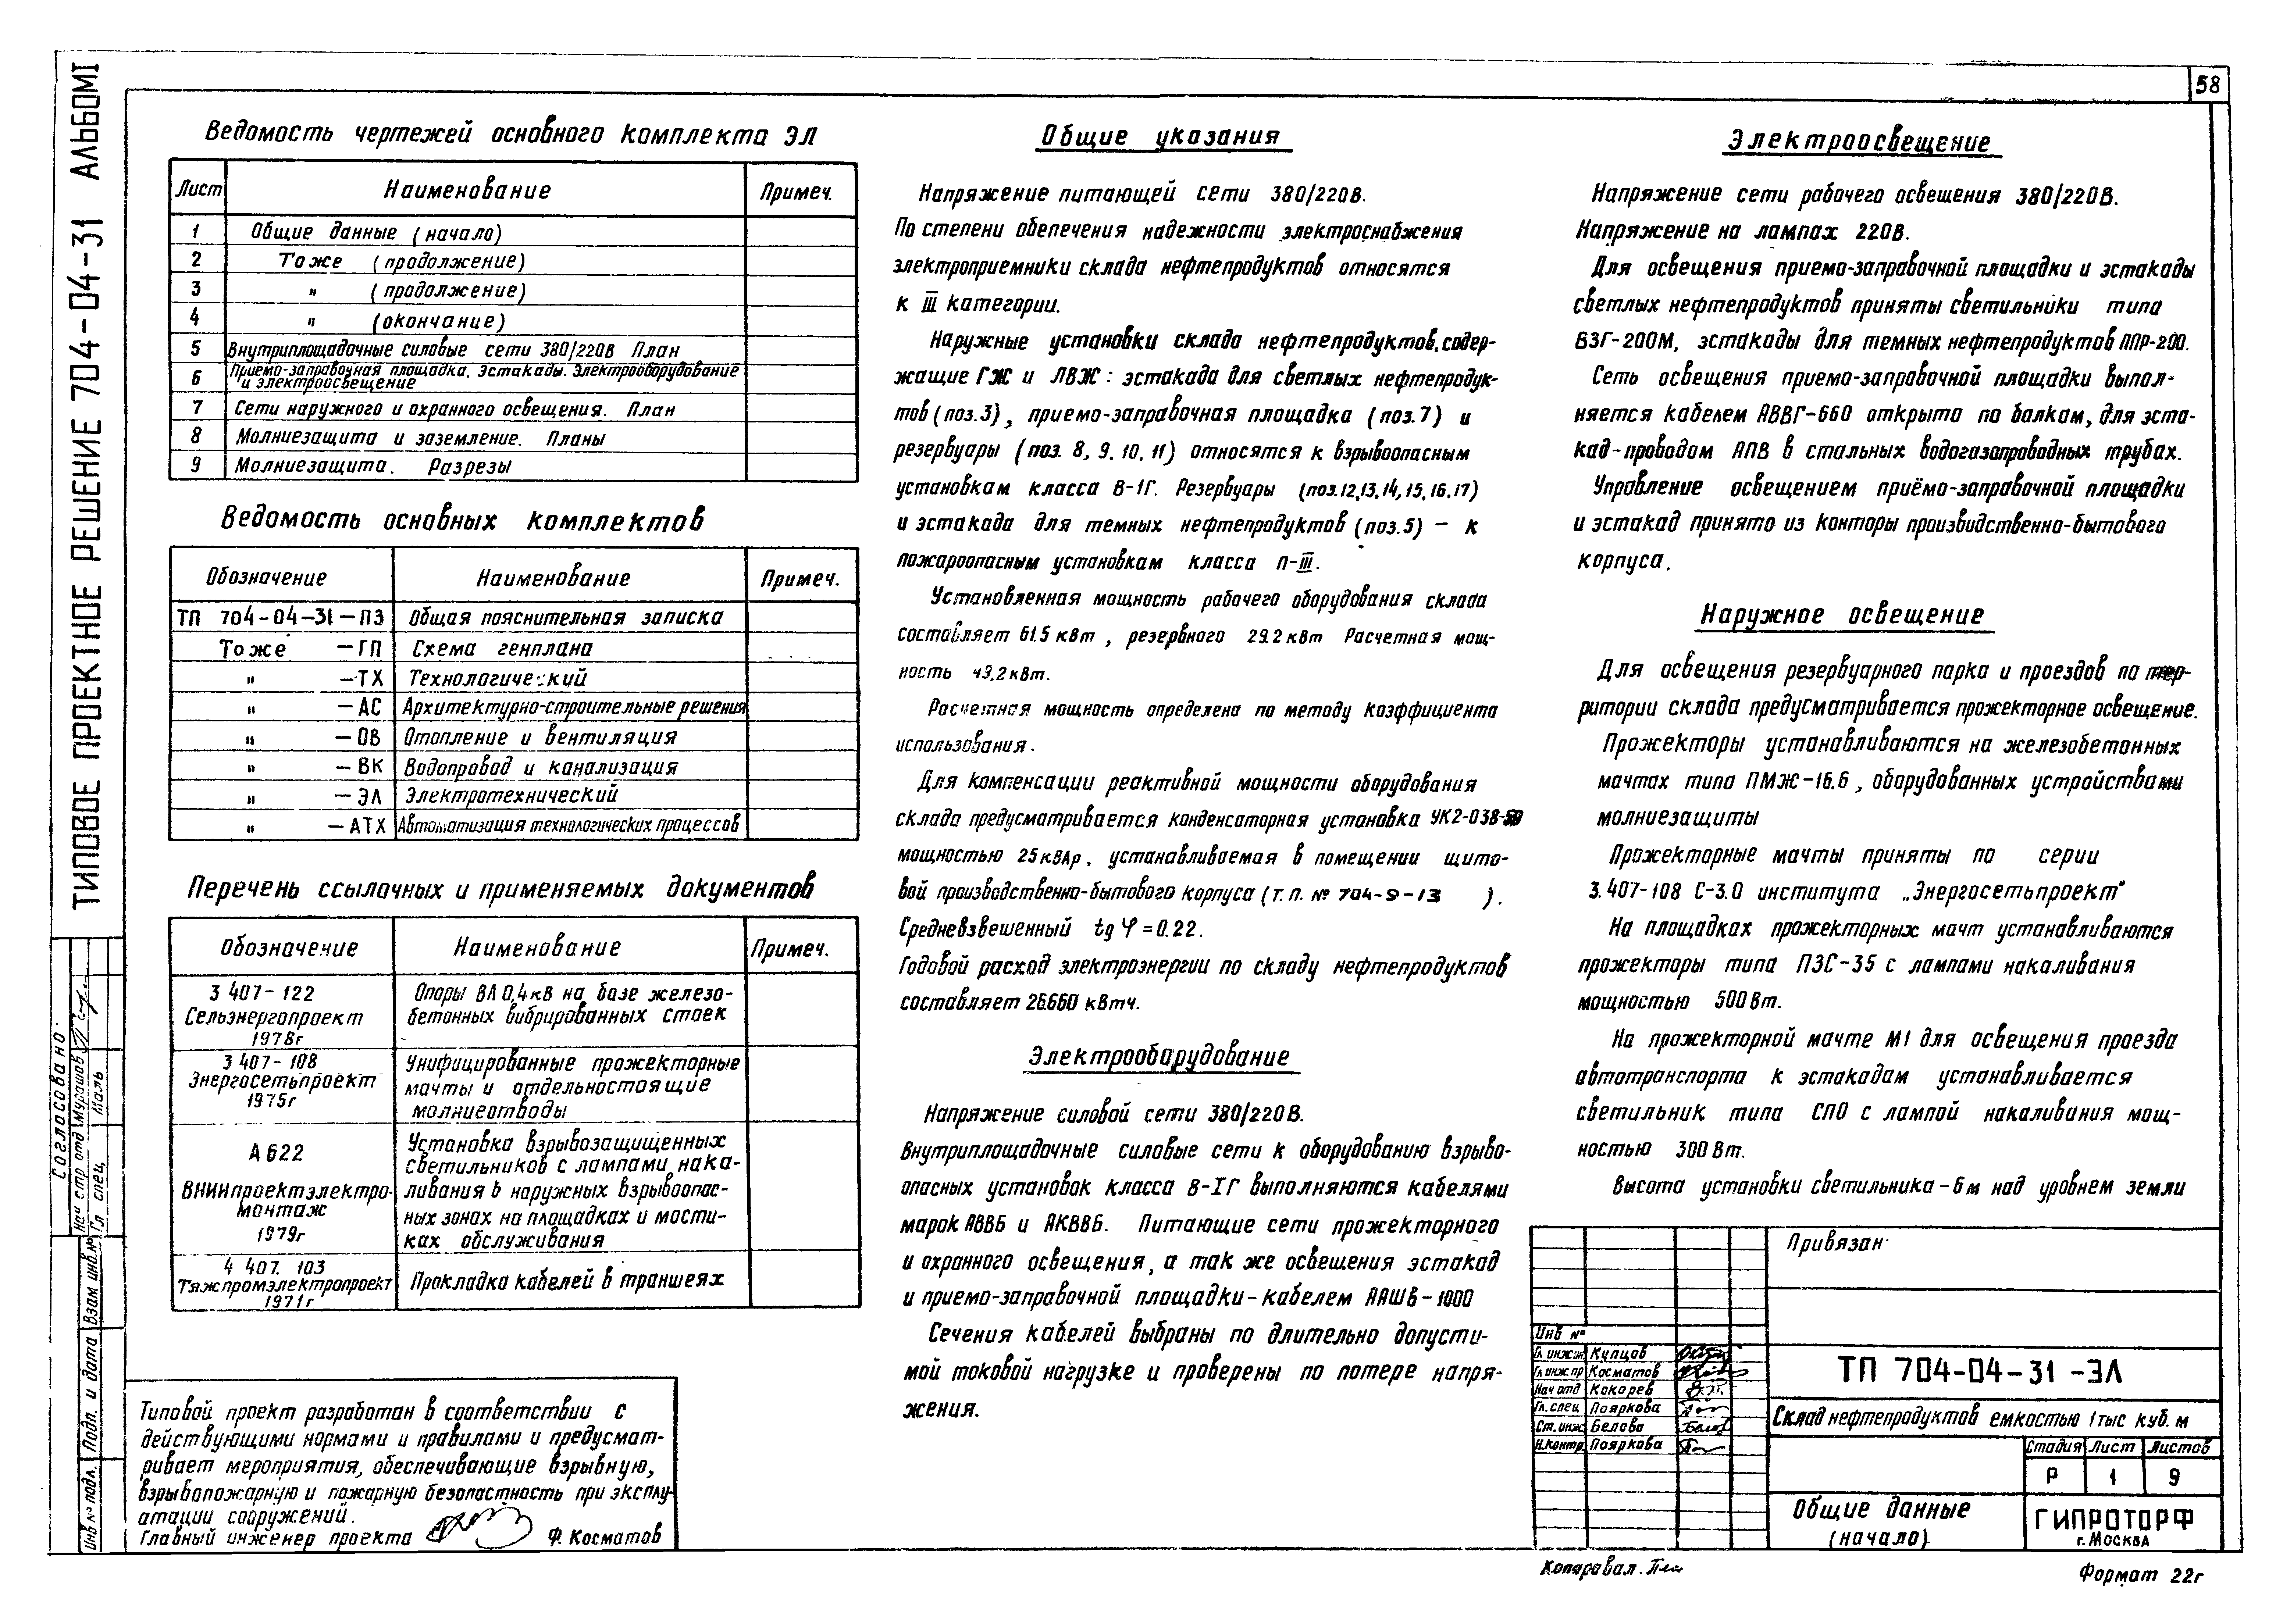 58
ТИПОВОЕ ПРОЕКТНОЕ РЕШЕНИЕ 704-04-31 АЛЬБОМ I
Ведомость чертежей основного комплекта ЭЛ
Лист Наименование Примеч.
1 Общие данные (начало)
2 То же (продолжение)
3 " (продолжение)
4 " (окончание)
5 Внутриплощадочные силовые сети 380/220В План
6 Приемо-заправочная площадка. Эстакады. Электрооборудование
и электроосвещение
7 Сети наружного и охранного освещения. План
8 Молниезащита и заземление. Планы
9 Молниезащита. Разрезы
Ведомость основных комплектов
Обозначение Наименование Примеч.
ТП 704-04-31-ПЗ Общая пояснительная записка
То же -ГП Схема генплана
" -ТХ Технологический
" -АС Архитектурно-строительные решения
" -ОВ Отопление и вентиляция
" -ВК Водопровод и канализация
" -ЭЛ Электротехнический
" -АТХ Автоматизация технологических процессов
Перечень ссылочных и применяемых документов
Обозначение Наименование Примеч.
3 407-122
Сельэнергопроект
1978г
Опоры ВЛ 0,4кВ на базе железо-
бетонных вибрированных стоек
3 407-108
Энергосетьпроект
1975г
Унифицированные прожекторные
мачты и отдельностоящие
молниеотводы
А622
ВНИИпроектэлектро-
монтаж
1979г
Установка взрывозащищенных
светильников с лампами нака-
ливания в наружных взрывоопас-
ных зонах на площадках и мости-
ках обслуживания
4 407. 103
Тяжпромэлектропроект
1971г
Прокладка кабелей в траншеях
Типовой проект разработан в соответствии с
действующими нормами и правилами и предусмат-
ривает мероприятия, обеспечивающие взрывную,
взрывопожарную и пожарную безопастность при эксплу-
атации сооружений.
Главный инженер проекта Ф. Косматов
Общие указания
Напряжение питающей сети 380/220В.
По степени обепечения надежности электроснабжения
электроприемники склада нефтепродуктов относятся
к III категории.
Наружные установки склада нефтепродуктов, содер-
жащие ГЖ и ЛВЖ: эстакада для светлых нефтепродук-
тов (поз.3), приемо-заправочная площадка (поз.7) и
резервуары (поз. 8, 9, 10, 11) относятся к взрывоопасным
установкам класса В-1Г. Резервуары (поз.12,13,14,15,16,17)
и эстакада для темных нефтепродуктов (поз.5) — к
пожароопасным установкам класса П-III.
Установленная мощность рабочего оборудования склада
составляет 61.5 кВт, резервного 29.2 кВт Расчетная мощ-
ность 49,2 кВт.
Расчетная мощность определена по методу коэффициента
использования.
Для компенсации реактивной мощности оборудования
склада предусматривается конденсаторная установка УК2-038-50
мощностью 25 кВАр, устанавливаемая в помещении щито-
вой производственно-бытового корпуса (т.п. № 704-9-13 ).
Средневзвешенный tg φ = 0.22.
Годовой расход электроэнергии по складу нефтепродуктов
составляет 26.660 кВтч.
Электрооборудование
Напряжение силовой сети 380/220В.
Внутриплощадочные силовые сети к оборудованию взрыво-
опасных установок класса В-IГ выполняются кабелями
марок АВВБ и АКВВБ. Питающие сети прожекторного
и охранного освещения, а так же освещения эстакад
и приемо-заправочной площадки - кабелем ААШВ-1000
Сечения кабелей выбраны по длительно допусти-
мой токовой нагрузке и проверены по потере напря-
жения.
Электроосвещение
Напряжение сети рабочего освещения 380/220В.
Напряжение на лампах 220В.
Для освещения приемо-заправочной площадки и эстакады
светлых нефтепродуктов приняты светильники типа
ВЗГ-200М, эстакады для темных нефтепродуктов ППР-200.
Сеть освещения приемо-заправочной площадки выпол-
няется кабелем АВВГ-660 открыто по балкам, для эста-
кад-проводом АПВ в стальных водогазопроводных трубах.
Управление освещением приёмо-заправочной площадки
и эстакад принято из конторы производственно-бытового
корпуса.
Наружное освещение
Для освещения резервуарного парка и проездов по тер-
ритории склада предусматривается прожекторное освещение.
Прожекторы устанавливаются на железобетонных
мачтах типа ПМЖ-16.6, оборудованных устройствами
молниезащиты
Прожекторные мачты приняты по серии
3.407-108 С-3.0 института „Энергосетьпроект"
На площадках прожекторных мачт устанавливаются
прожекторы типа ПЗС-35 с лампами накаливания
мощностью 500 Вт.
На прожекторной мачте М1 для освещения проезда
автотранспорта к эстакадам устанавливается
светильник типа СПО с лампой накаливания мощ-
ностью 300 Вт.
Высота установки светильника - 6 м над уровнем земли
Привязан
Инв №
Гл инж ин Купцов
Гл инж. пр Косматов
Нач отд Кокорев
Гл. спец Пояркова
Ст. инж Белова
Н. контр Пояркова
ТП 704-04-31 -ЭЛ
Склад нефтепродуктов емкостью 1 тыс куб. м
Стадия Лист Листов
Р 1 9
Общие данные
(начало)
ГИПРОТОРФ
г. Москва
Копировал.
Формат 22г
Согласовано:
Нач стр отд Мурашов
Гл спец Маль
Взам инв.№
Подп. и дата
Инв № подл.